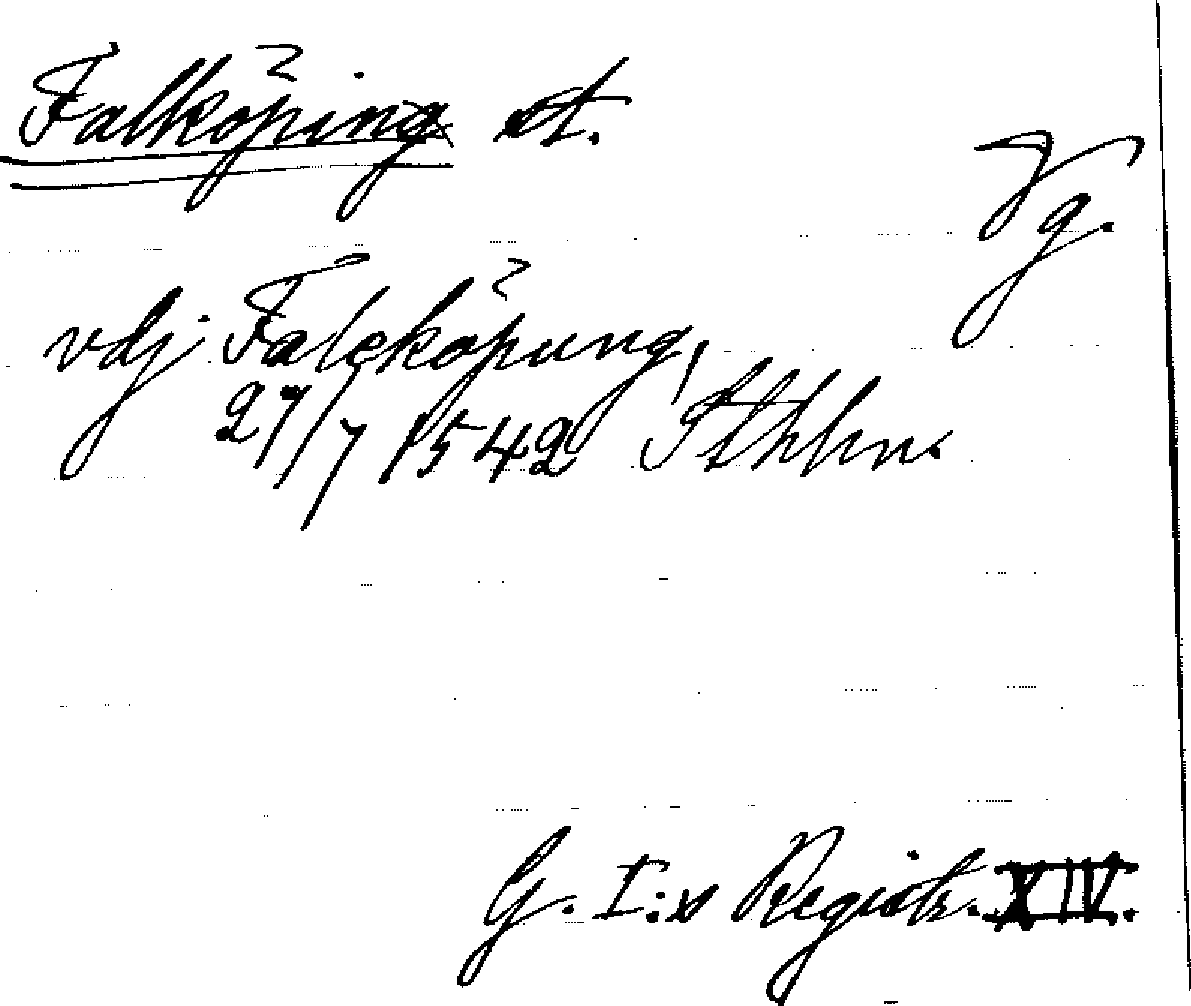 Falköping st.
Vg.
vdj Faleköpung,
27/7 1542 Sthlm.
G. I:s Registr. XIV.